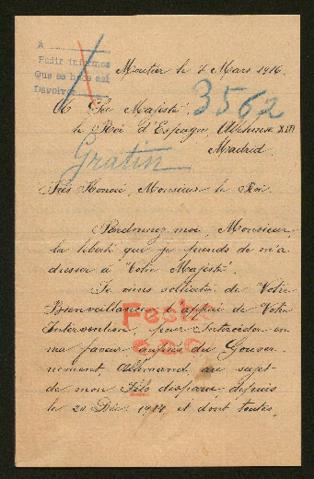 A
Pedir informes
Que se hace así
Devolver
Moutier le 7 Mars 1916.
3562
A Sa Majesté
le Roi d'Espagne, Alphonse XIII
Madrid.
Gratin
Très Honoré, Monsieur le Roi.
Pardonnez moi, Monsieur,
la liberté que je prends de m'a
dresser à Votre Majesté.
Je viens solliciter de Votre
Bienveillance, l'appui de Votre
Intervention, pour Intercéder en
ma faveur auprès du Gouver-
nement Allemand au sujet
de mon Fils disparu depuis
le 20 Déc. 1914, et dont toutes